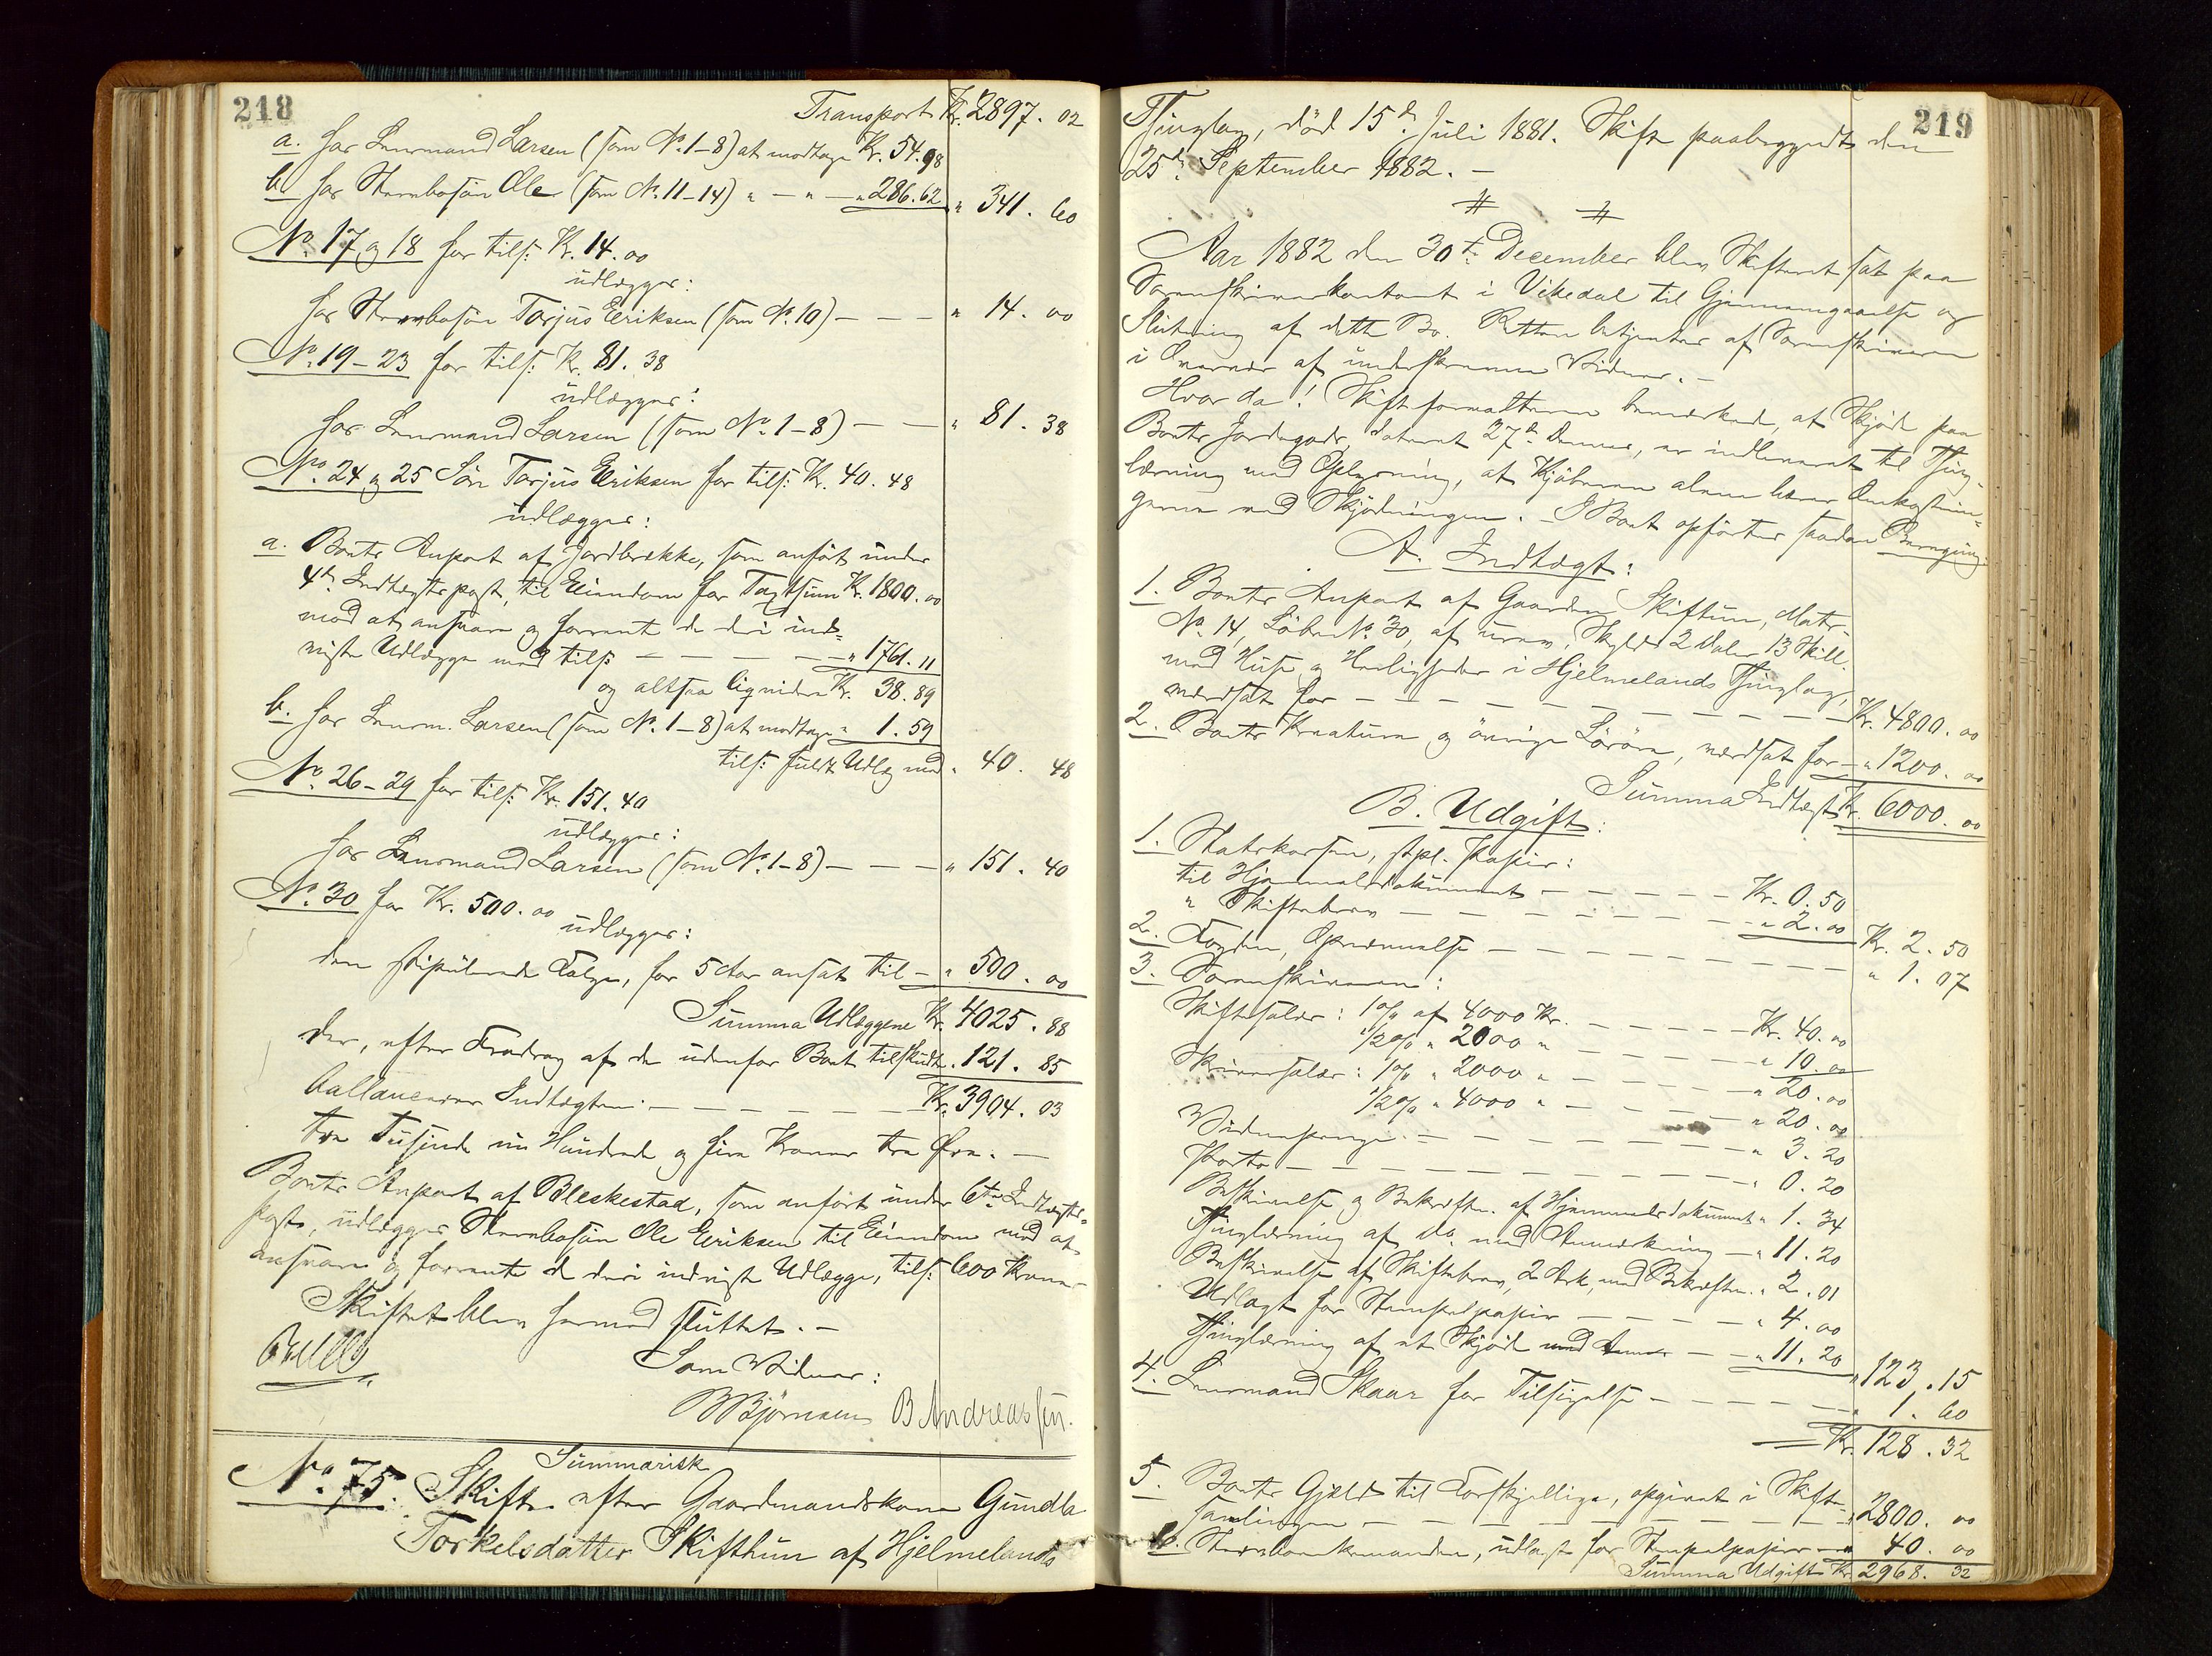 218
Transport Kr. 2897. 02
a. har Lensmand Larsen (som No. 1-8) at modtage Kr. 54.98
b. har Stervbosøn Ole (som No. 11-14) " — " — " 286.62 " 341. 60
No. 17 og 18 for tils: Kr. 14. 00
udlægges:
har Stervbosøn Torjus Eriksen (som No. 10) — — — " 14. 00
No. 19-23 for tils: Kr. 81. 38
udlægges:
har Lensmand Larsen (som No. 1-8) — — " 81. 38
No. 24 og 25 Søn Torjus Eriksen for tils: Kr. 40. 48
udlægges:
a. Boets Anpart af Jordbrække, som anført under
4de Indtægtspost, til Eiendom for Taxtsum Kr. 1800. 00
mod at ansvare og forrente de deri ind=
viste Udlægge med tils: — — — — " 1761. 11
og altsaa liqvidere Kr. 38. 89
b. har Lensm. Larsen (som No. 1-8) at modtage " 1. 59
tils: fuldt Udlæg med " 40. 48
No. 26-29 for tils: Kr. 151. 40
udlægges:
har Lensmand Larsen (som No. 1-8) — — — " 151. 40
No. 30 for Kr. 500. 00
udlægges:
den stipulerede Følge, for 5 Aar ansat til — " 500. 00
Summa Udlæggene Kr. 4025. 88
der, efter Fradrag af de udenfor Boet tilskudte " 121. 85
ballancerer Indtægten — — — — — Kr. 3904. 03
tre Tusinde ni Hundrede og fire Kroner tre Øre. —
Boets Anpart af Bleskestad, som anført under 6te Indtægts=
post, udlægges Stervbosøn Ole Eriksen til Eiendom mod at
ansvare og forrente de deri indviste Udlægge, tils: 600 Kroner
Skiftet blev hermed sluttet. —
Som Vidner:
B Bjørnsen B Andreassen.
No. 75. Summarisk
Skifte efter Gaardmandskone Gundla
Torkelsdatter Skifthun af Hjelmelands
219
Thinglag, død 15de Juli 1881. Skifte paabegyndt den
25de September 1882. —
Aar 1882 den 30te December blev Skifteret sat paa
Sorenskriverkontoret i Vikedal til Gjennemgaaelse og
Slutning af dette Bo. Retten betjentes af Sorenskriveren
i Overvær af underskrevne Vidner. —
Hvor da! Skifteforvalteren bemærkede, at Skjøde paa
Boets Jordegods, dateret 27de Dennes, er indleveret til Thing-
læsning med Oplysning, at Kjøberen alene bærer Omkostnin=
gerne ved Skjødningen. — I Boet opførtes saadan Beregning.
A. Indtægt:
1. Boets Anpart af Gaarden Skiftun, Matr.
No. 14, Løbe No. 30, af urev. Skyld 2 Daler 13 Skill.
med Huse og Herligheder i Hjelmelands Thinglag,
værdsat for — — — — — — — — Kr. 4800. 00
2. Boets Kreature og øvrige Løsøre, værdsat for — " 1200. 00
Summa Indtægt Kr. 6000. 00
B. Udgift:
1. Statskassen, stpl. Papir:
til Hjemmelsdokument — — — — — Kr. 0. 50
" Skiftebrev — — — — — — — " 2. 00 Kr. 2. 50
2. Fogden, Opnævnelse — — — — — — — " 1. 07
3. Sorenskriveren:
Skiftesalær: 1 0/0 af 4000 Kr. — — — — Kr. 40. 00
1/2 0/0 " 2000 " — — — — — " 10. 00
Skriversalær: 1 0/0 " 2000 " — — — — — " 20. 00
1/2 0/0 " 4000 " — — — — — " 20. 00
Vidnepenge. — — — — — — — " 3. 20
Porto — — — — — — — — " 0. 20
Beskrivelse og Bekræften. af Hjemmelsdokument " 1. 34
Thinglæsning af do. med Anmærkning — " 11. 20
Beskrivelse af Skiftebrev, 2 Ark, med Bekræften. " 2. 01
Udlagt for Stempelpapir — — — — — " 4. 00
Thinglæsning af et Skjøde med Anmær — — " 11. 20 " 123. 15
4. Lensmand Skaar for Tilsigelse — — — — — " 1. 60
Kr. 128. 32
5. Boets Gjæld til Forskjellige, opgivet i Skifte-
samlingen — — — — — — — — " 2800. 00
6. Stervboenkemanden, udlagt for Stempelpapir — " 40. 00
Summa Udgift Kr. 2968. 32